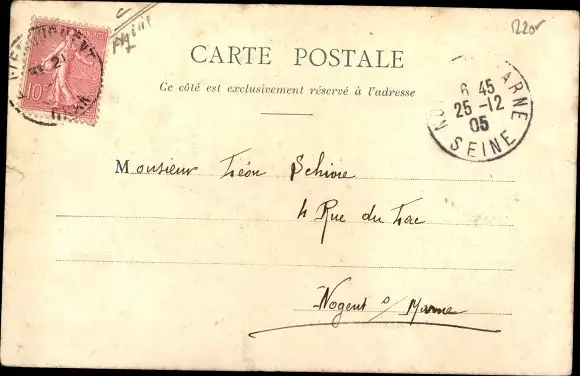 220r
CARTE POSTALE
Ce côté est exclusivement réservé à l'adresse
10c
6 45
25 -12
05
SEINE
ARNE
Monsieur Léon Schivre
4 Rue du Lac
Nogent s/ Marne